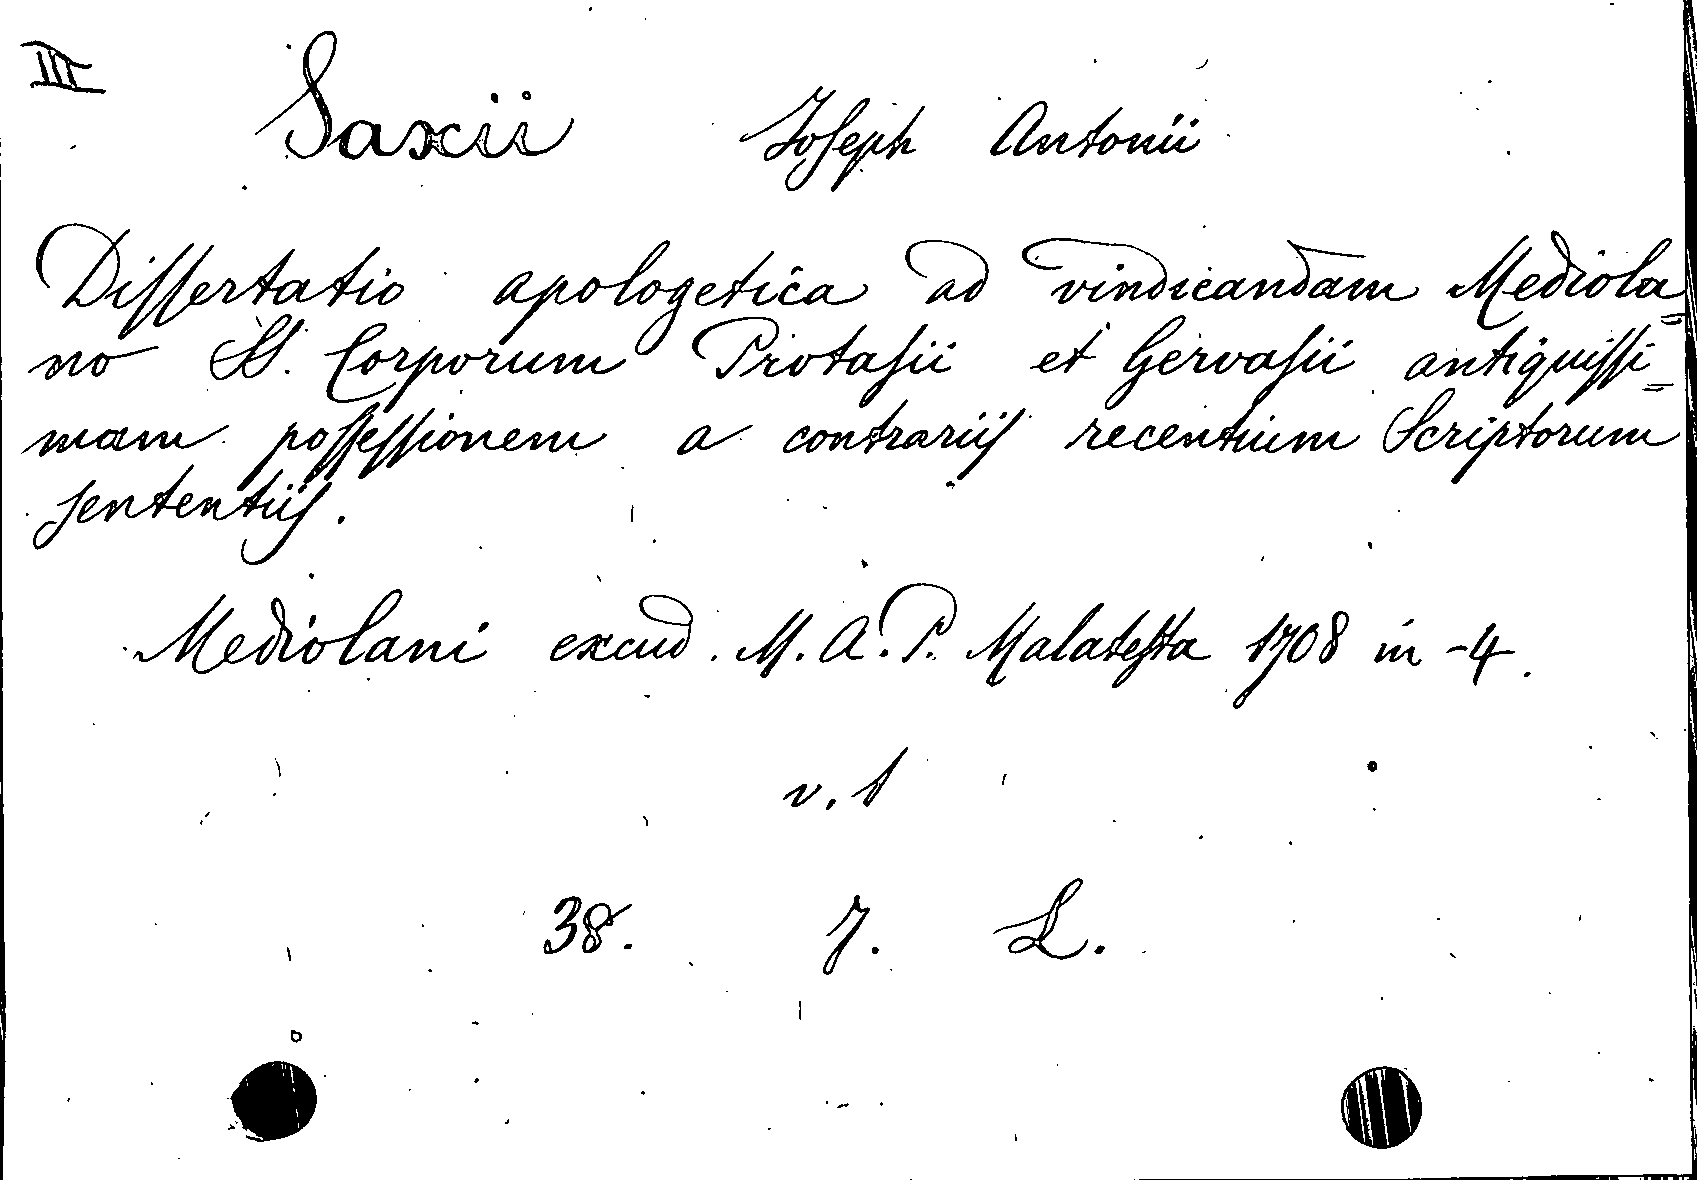 III
Saxii Joseph Antonii
Dissertatio apologetica ad vindicandam Mediola=
no SS. Corporum Protasii et Gervasii antiquissi=
mam possessionem a contrariis recentium Scriptorum
sententiis.
Mediolani excud. M. A. P. Malatesta 1708 in-4.
v. 1
38. 7. L.